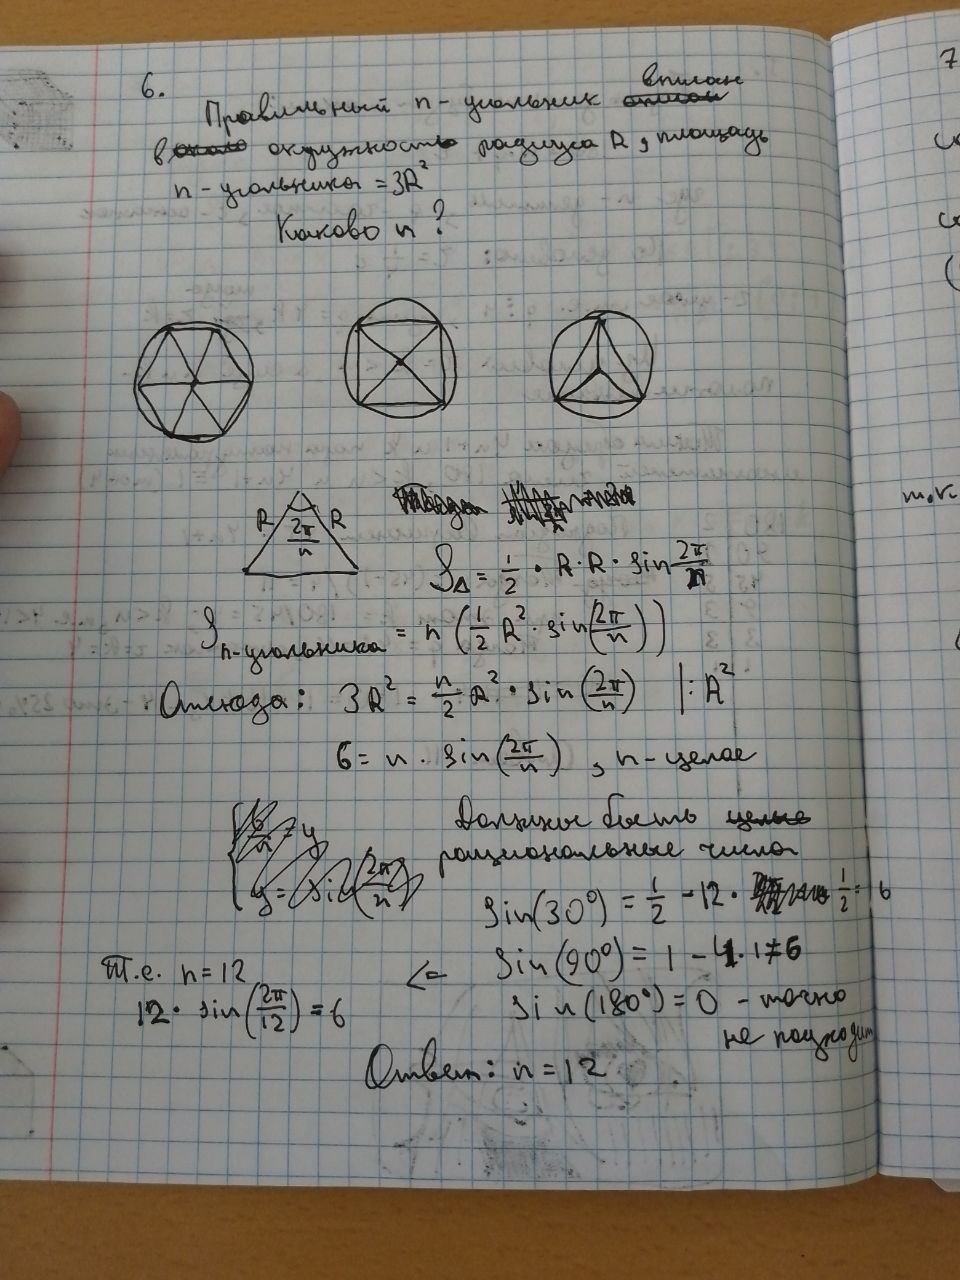 6.
Правильный n-угольник вписан
в окружность радиуса R, площадь
n-угольника = 3R²
Каково n?
R 2π/n R
S△ = 1/2 · R · R · sin 2π/n
Sn-угольника = n (1/2 R² · sin(2π/n))
Отсюда: 3R² = n/2 R² · sin(2π/n) |: R²
6 = n · sin(2π/n), n - целое
6/n = y
y = sin(2π/n)
Должны быть
рациональные числа
sin(30°) = 1/2 - 12 · 1/2 = 6
sin(90°) = 1 - 4 · 1 ≠ 6
sin(180°) = 0 - точно
не подходит
<=
Т.е. n = 12
12 · sin(2π/12) = 6
Ответ: n = 12
7
т.к.